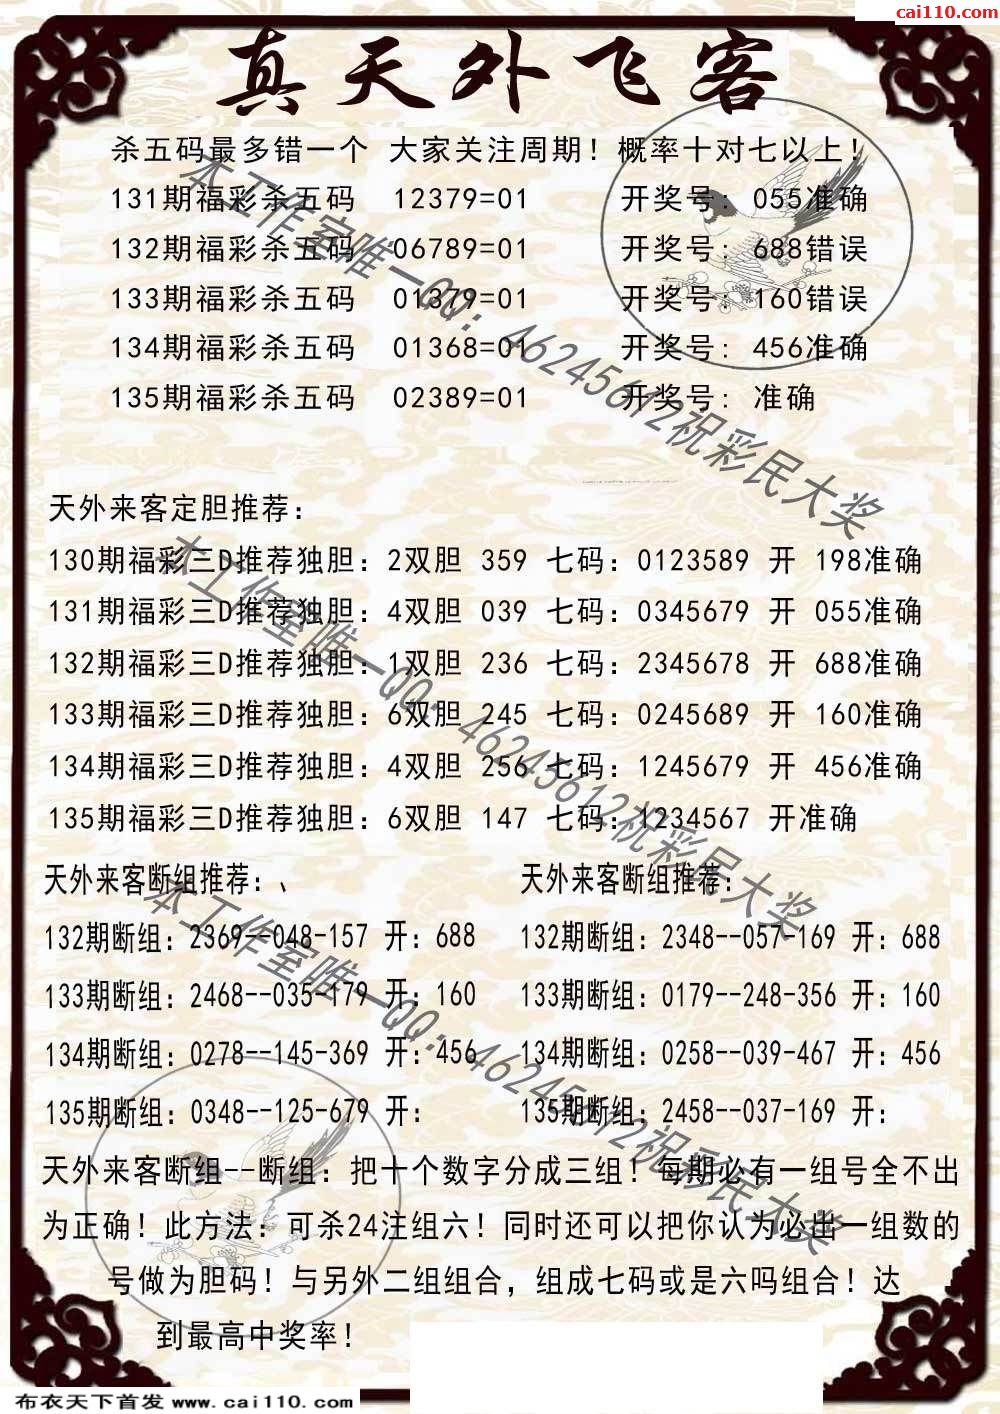 cai110.com
真天外飞客
杀五码最多错一个 大家关注周期！概率十对七以上！
131期福彩杀五码 12379=01 开奖号: 055准确
132期福彩杀五码 06789=01 开奖号: 688错误
133期福彩杀五码 01379=01 开奖号: 160错误
134期福彩杀五码 01368=01 开奖号: 456准确
135期福彩杀五码 02389=01 开奖号: 准确
本工作室唯一QQ: 46245612祝彩民大奖
天外来客定胆推荐:
130期福彩三D推荐独胆: 2双胆 359 七码: 0123589 开 198准确
131期福彩三D推荐独胆: 4双胆 039 七码: 0345679 开 055准确
132期福彩三D推荐独胆: 1双胆 236 七码: 2345678 开 688准确
133期福彩三D推荐独胆: 6双胆 245 七码: 0245689 开 160准确
134期福彩三D推荐独胆: 4双胆 256 七码: 1245679 开 456准确
135期福彩三D推荐独胆: 6双胆 147 七码: 1234567 开准确
本工作室唯一QQ: 46245612祝彩民大奖
天外来客断组推荐:、 天外来客断组推荐:
132期断组: 2369--048-157 开: 688 132期断组: 2348--057-169 开: 688
133期断组: 2468--035-179 开: 160 133期断组: 0179--248-356 开: 160
134期断组: 0278--145-369 开: 456 134期断组: 0258--039-467 开: 456
135期断组: 0348--125-679 开: 135期断组: 2458--037-169 开:
本工作室唯一QQ: 46245612祝彩民大奖
天外来客断组--断组: 把十个数字分成三组！每期必有一组号全不出
为正确！此方法: 可杀24注组六！同时还可以把你认为必出一组数的
号做为胆码！与另外二组组合，组成七码或是六吗组合！达
到最高中奖率！
布衣天下首发 www.cai110.com